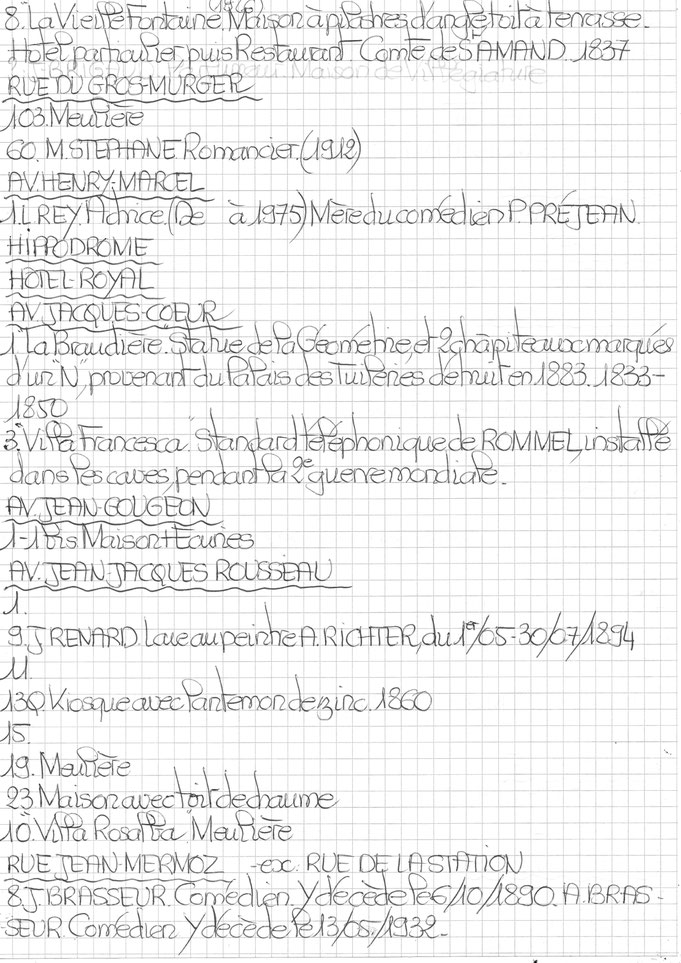 8."La Vieille Fontaine". Maison à pilastres d'angle toit à terrasse.
Hôtel particulier puis Restaurant. Comte de St AMAND. 1837
RUE DU GROS-MURGER
103. Meulière
60. M. STEPHANE. Romancier. (1912)
AV. HENRY-MARCEL
1. L REY. Actrice. (De à 1975) Mère du comédien P. PRÉJEAN.
HIPPODROME
HOTEL-ROYAL
AV. JACQUES-COEUR
1 "La Braudière". Statue de la Géométrie, et 2 chapiteaux marqués
d'un "N", provenant du Palais des Tuileries détruit en 1883. 1833-
1850
3. "Villa Francesca". Standard téléphonique de ROMMEL, installé
dans les caves, pendant la 2e guerre mondiale.
AV. JEAN-GOUGEON
1-1 Bis Maison + Ecuries
AV. JEAN-JACQUES ROUSSEAU
1.
9. J RENARD. Loue au peintre A. RICHTER, du 1er/05-30/07/1894
11.
13Q. Kiosque avec lanternon de zinc. 1860
15.
19. Meulière
23 Maison avec toit de chaume
10 "Villa Rosalba" Meulière
RUE JEAN-MERMOZ -ex. RUE DE LA STATION
8. J. BRASSEUR. Comédien. Y décède le 6/10/1890. A. BRAS-
SEUR. Comédien. Y décède le 13/05/1932.